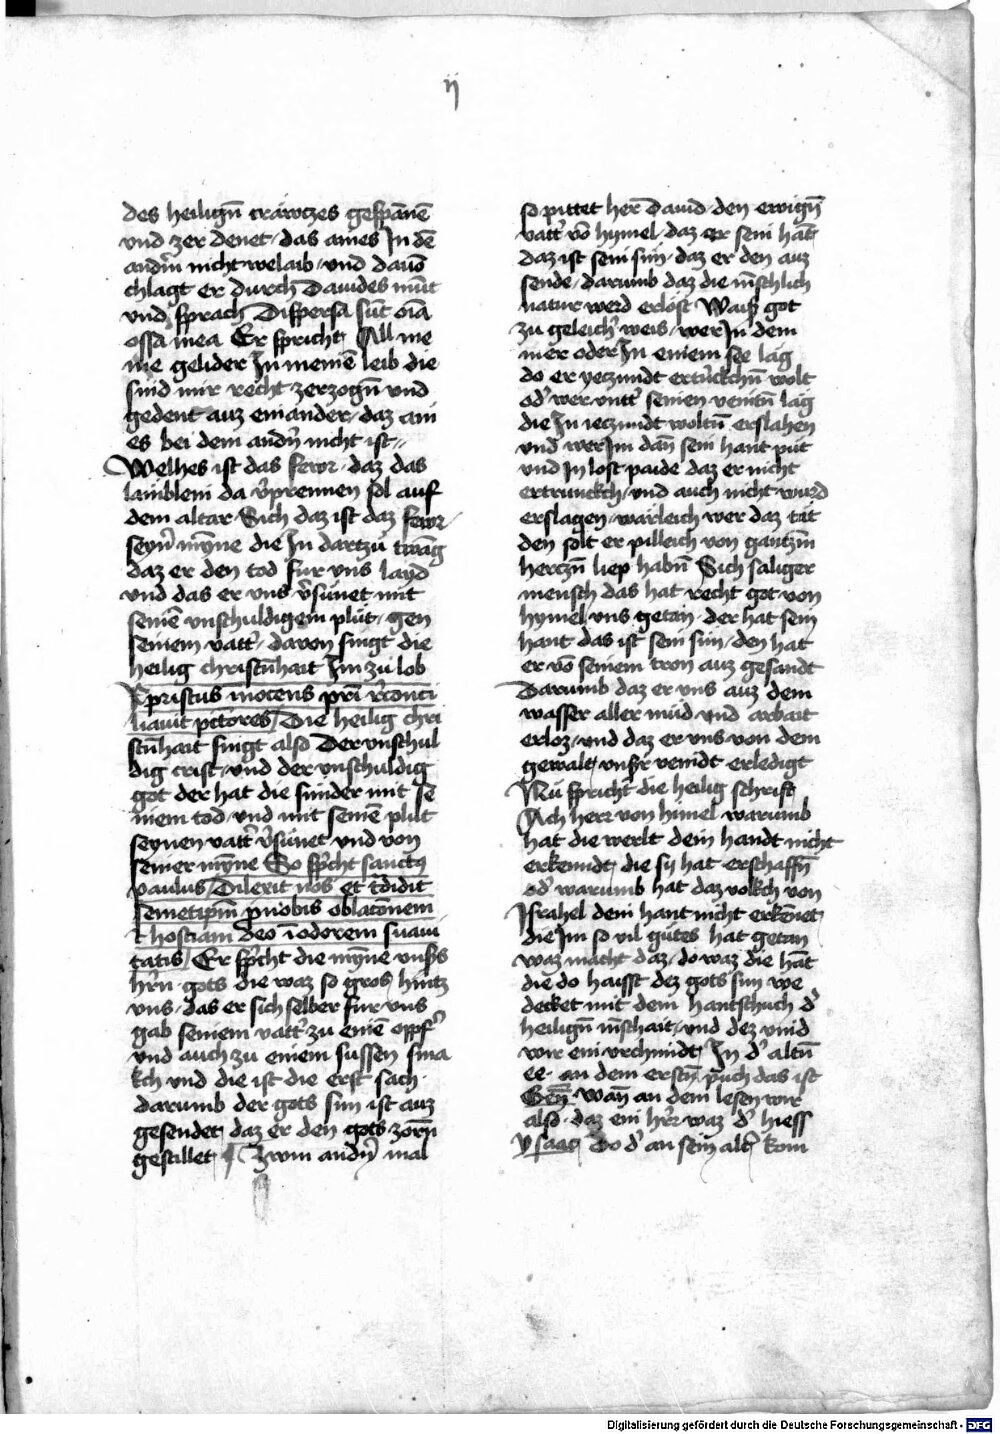 ij
des heilign̄ cräwtzes gespānē
vnd zer denet / das aines Jn dē
andn̄ nicht welaib / vnd dauō
chlagt er durch Dauides mūt
vnd sprach Dispersa sūt oīa
ossa mea Er spricht All me
ine gelider Jn meinē leib die
sind mir recht zerzogn̄ vnd
gedent auz einander / daz ain
es bei dem andn̄ nicht ist //
Welhes ist das fewr / daz das
lamblein da v̄prennen sol auf
dem altar / Sich daz ist daz fewr /
seyn̄ mȳne die Jn dartzů twāg
daz er den tod fur vns layd
vnd das er vns v̄sünet mit
seinē vnschuldigem plůt / gen
seinem vatt̄ / davon singt die
heilig christn̄hait Jm zu lob
Xpristus īnocens pr̄i r̄conci
liauit pctores / Die heilig chri
stn̄hait singt also Der vnschul
dig crist / vnd der vnschuldig
got der hat die sunder mit se
inem tod / vnd mit seinē plůt
seynen vatt̄ v̄sünet vnd von
seiner mȳne So sp̄cht sanctꝰ
paulus / Dilexit nos et t̄didit
semetip̄m p̄ nobis oblacōnem
⁊ hostiam deo ī odorem suaui
tatis / Er sp̄cht die mȳne vnsʼs
hr̄n gots die waz so gros hintz
vns / das er sich selber fur vns
gab seinem vatt̄ zu einē oppfʼ
vnd auch zu einem sussen sma
kch vnd die ist die erst sach
darumb der gots sun ist auz
gesendet / daz er den gots zorn̄
gestillet / ¶ Zwm andn̄ mal
so pittet her Dauid den ewign̄
vatt̄ vō hymel / daz er sein hāt
daz ist sein sun / daz er den auz
sende / darumb daz die mēschlich
natur werd erlöst Waiß got
zu geleichʼ weis / wer Jn dem
mer oder Jn einem see lag
do er yeczundt ertrückchn̄ wolt
odʼ wer vntt̄ seinen veintn̄ lag
die Jn ieczundt woltn̄ erslahen
vnd wer Jm dān sein hant püt
vnd Jn lost paide daz er nicht
ertrunckch / vnd auch nicht wurd
erslagen / wärleich wer daz tät
den solt er pilleich von gantzm̄
herczn̄ liep habn̄ Sich saliger
mensch das hat recht got von
hymel / vns getan / der hat sein
hant / das ist sein sun / den hat
er vō seinem tron auz gesandt
Darumb daz er vns auz dem
wasser aller müd vnd arbait
erloz / vnd daz er vns von dem
gewalt / vnsʼr veindt erledigt
Nu spricht die heilig schrift
Ach herr von himel warumb
hat die werlt dein handt nicht
erkenndt / die sy hat erschaffn̄
odʼ warumb hat daz volkch von
Jsrahel dein hant nicht erkēnet /
die Jm so vil gutes hat getan
waz macht daz / do waz die hāt
die do haisst dez gots sun we
decket mit dem hantschuch dʼ
heilign̄ mēschait / vnd dez vind
wir ein vrchundt / Jn dʼ altn̄
ee an dem erstn̄ puch das ist
Gen̄ / wān an dem lesen wir
also / daz ein hr̄r waz dʼ hiess
ysaac / Do dʼ an sein alt̄ kom
Digitalisierung gefördert durch die Deutsche Forschungsgemeinschaft - DFG